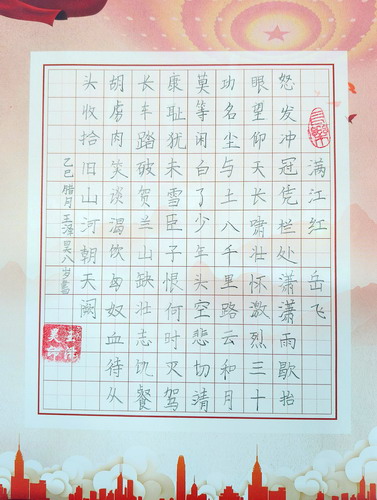 满江红 岳飞
怒发冲冠凭栏处潇潇雨歇抬
眼望仰天长啸壮怀激烈三十
功名尘与土八千里路云和月
莫等闲白了少年头空悲切清
康耻犹未雪臣子恨何时灭驾
长车踏破贺兰山缺壮志饥餐
胡虏肉笑谈渴饮匈奴血待从
头收拾旧山河朝天阙
乙巳腊月王泽昊八岁書